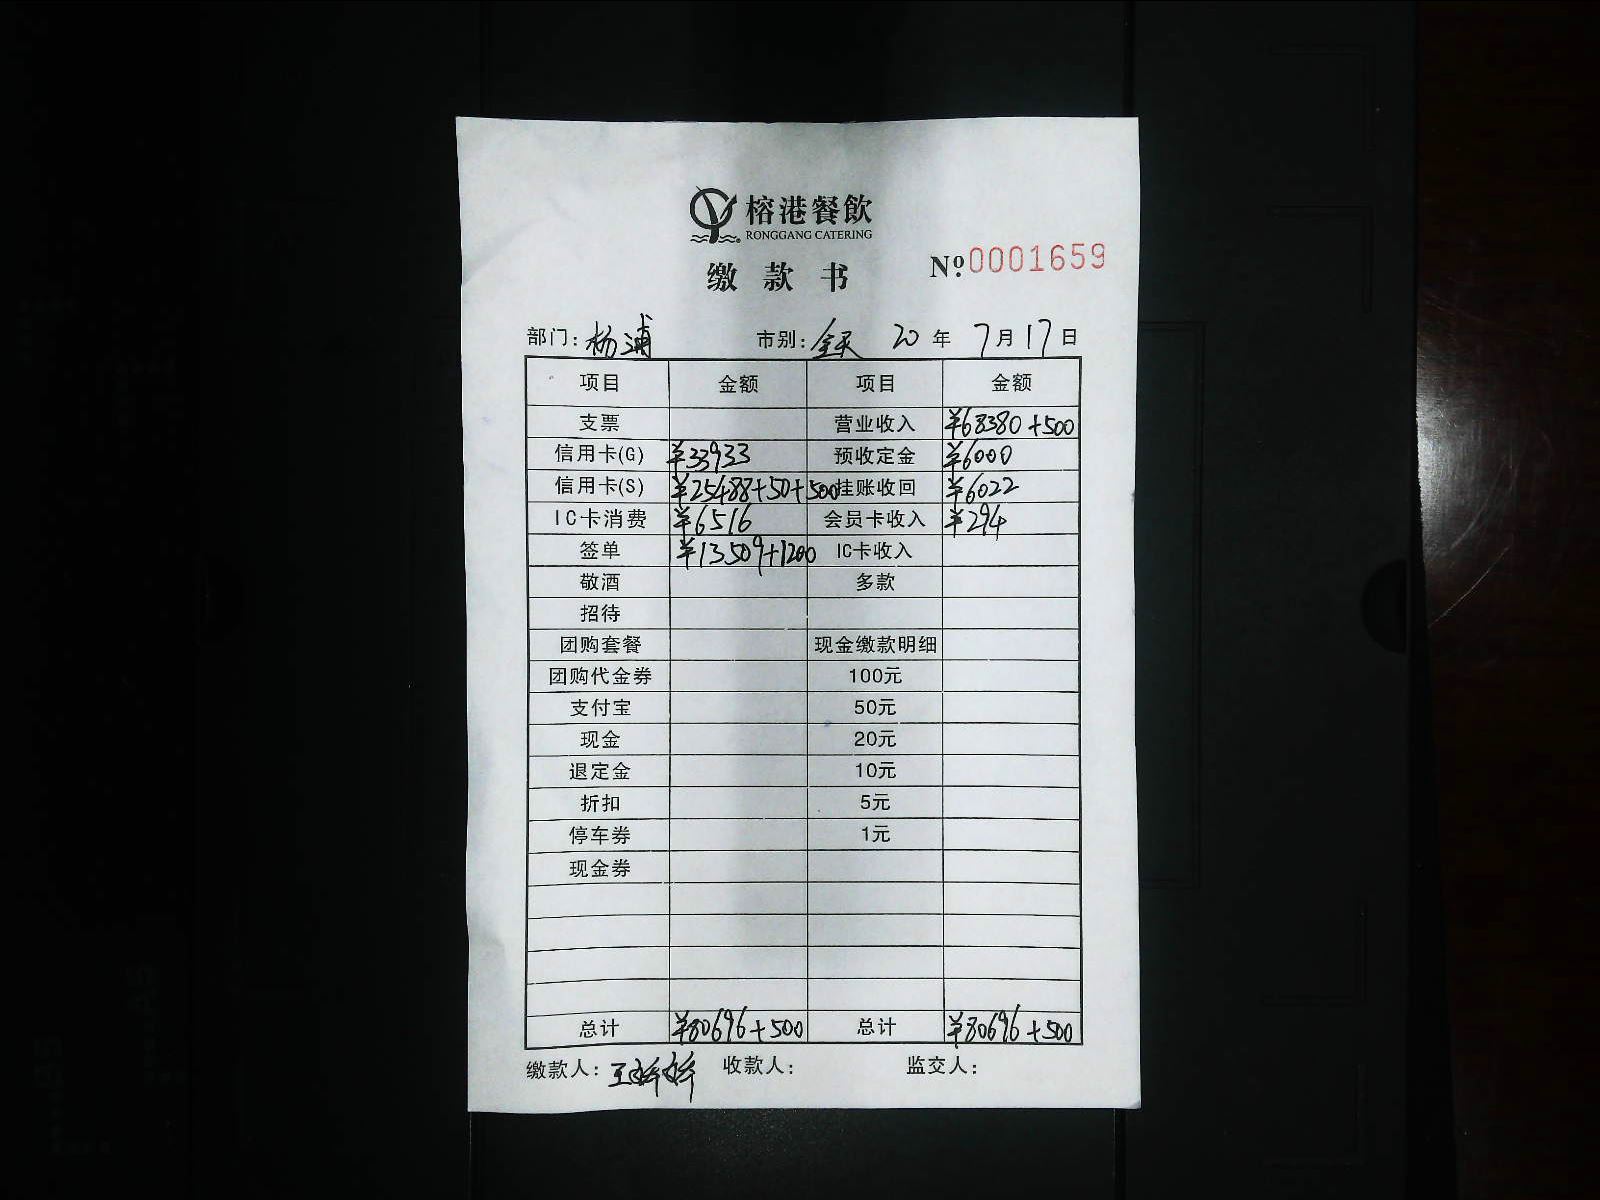 榕港餐飲
RONGGANG CATERING
缴款书 №0001659
部门：杨浦 市别：全天 20年7月17日
项目 金额 项目 金额
支票 营业收入 ¥68380+500
信用卡(G) ¥33933 预收定金 ¥6000
信用卡(S) ¥25488+50+500 挂账收回 ¥6022
IC卡消费 ¥6516 会员卡收入 ¥294
签单 ¥13509+1200 IC卡收入
敬酒 多款
招待
团购套餐 现金缴款明细
团购代金券 100元
支付宝 50元
现金 20元
退定金 10元
折扣 5元
停车券 1元
现金券
总计 ¥80696+500 总计 ¥80696+500
缴款人：王婷婷 收款人： 监交人：